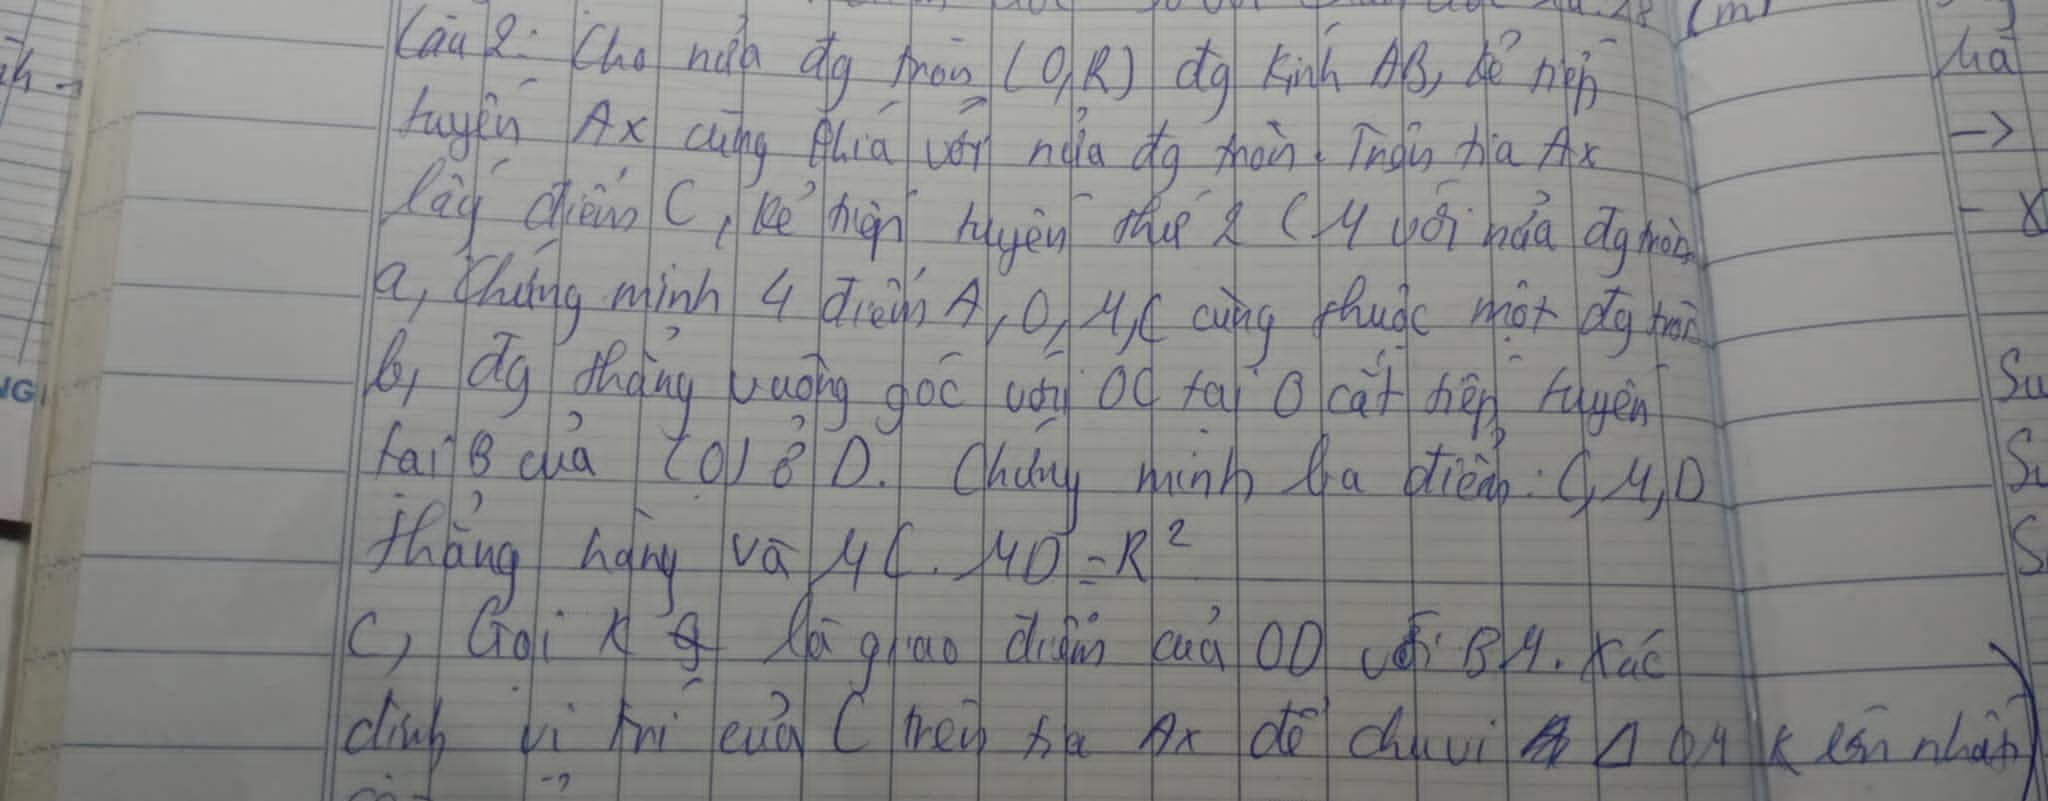 (m)
Câu 2: Cho nửa đg tròn (O,R) đg kính AB, kẻ tiếp
hà
tuyến Ax cùng phía với nửa đg tròn. Trên tia Ax
->
lấy điểm C, kẻ tiếp tuyến thứ 2 CM với nửa đg tròn
- x
a, Chứng minh 4 điểm A, O, M, C cùng thuộc một đg tròn
NG
b, đg thẳng vuông góc với OC tại O cắt tiếp tuyến
Su
tại B của (O) ở D. Chứng minh ba điểm: C, M, D
thẳng hàng và MC. MD = R²
c) Gọi K là giao điểm của OD với BM. Xác
định vị trí của C trên tia Ax để chu vi Δ OMK lớn nhất